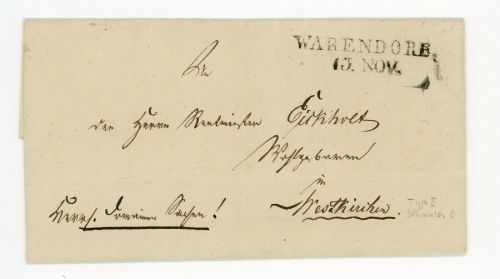 WARENDORF
13. NOV.
An
den Herrn Rentmeister Eickholt
Wohlgeboren
in
Westkirchen.
Herrsch. Domainen Sachen!
Type II